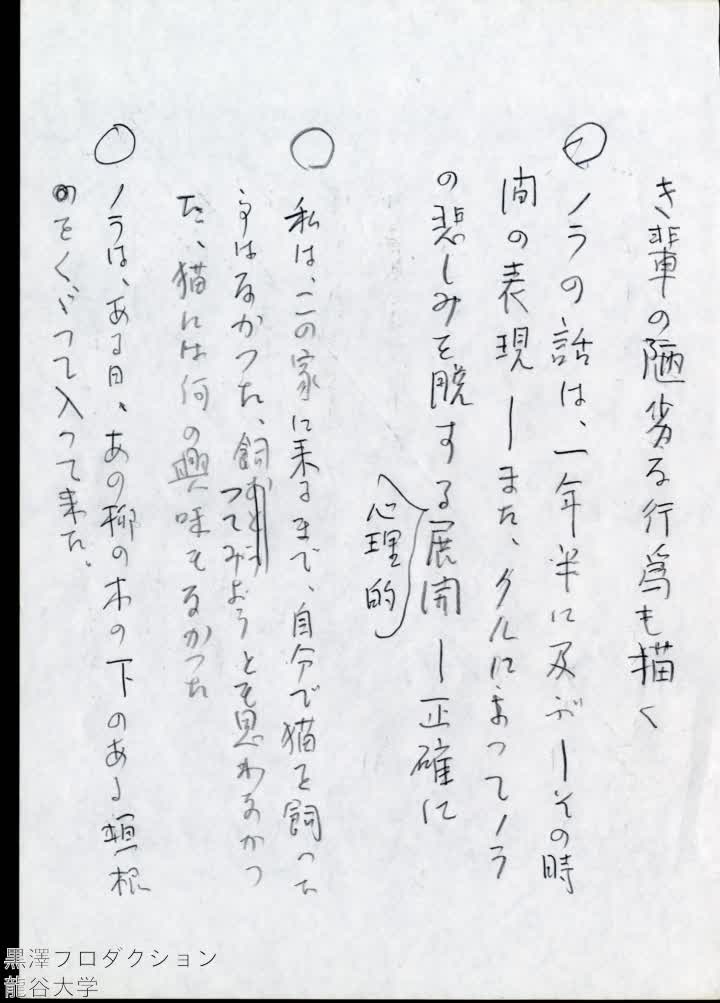 き輩の陋劣な行為も描く
○ノラの話は、一年半に及ぶーその時
間の表現ーまた、クルによってノラ
の悲しみを脱する展開ー正確に
心理的
○私は、この家に来るまで、自分で猫を飼った
事はなかった、飼おうと
つてみようとも思わなかつ
た、猫には何の興味もなかった
○ノラは、ある日、あの柳の木の下のある垣根
のをくゞつて入って来た。
黒澤プロダクション
龍谷大学